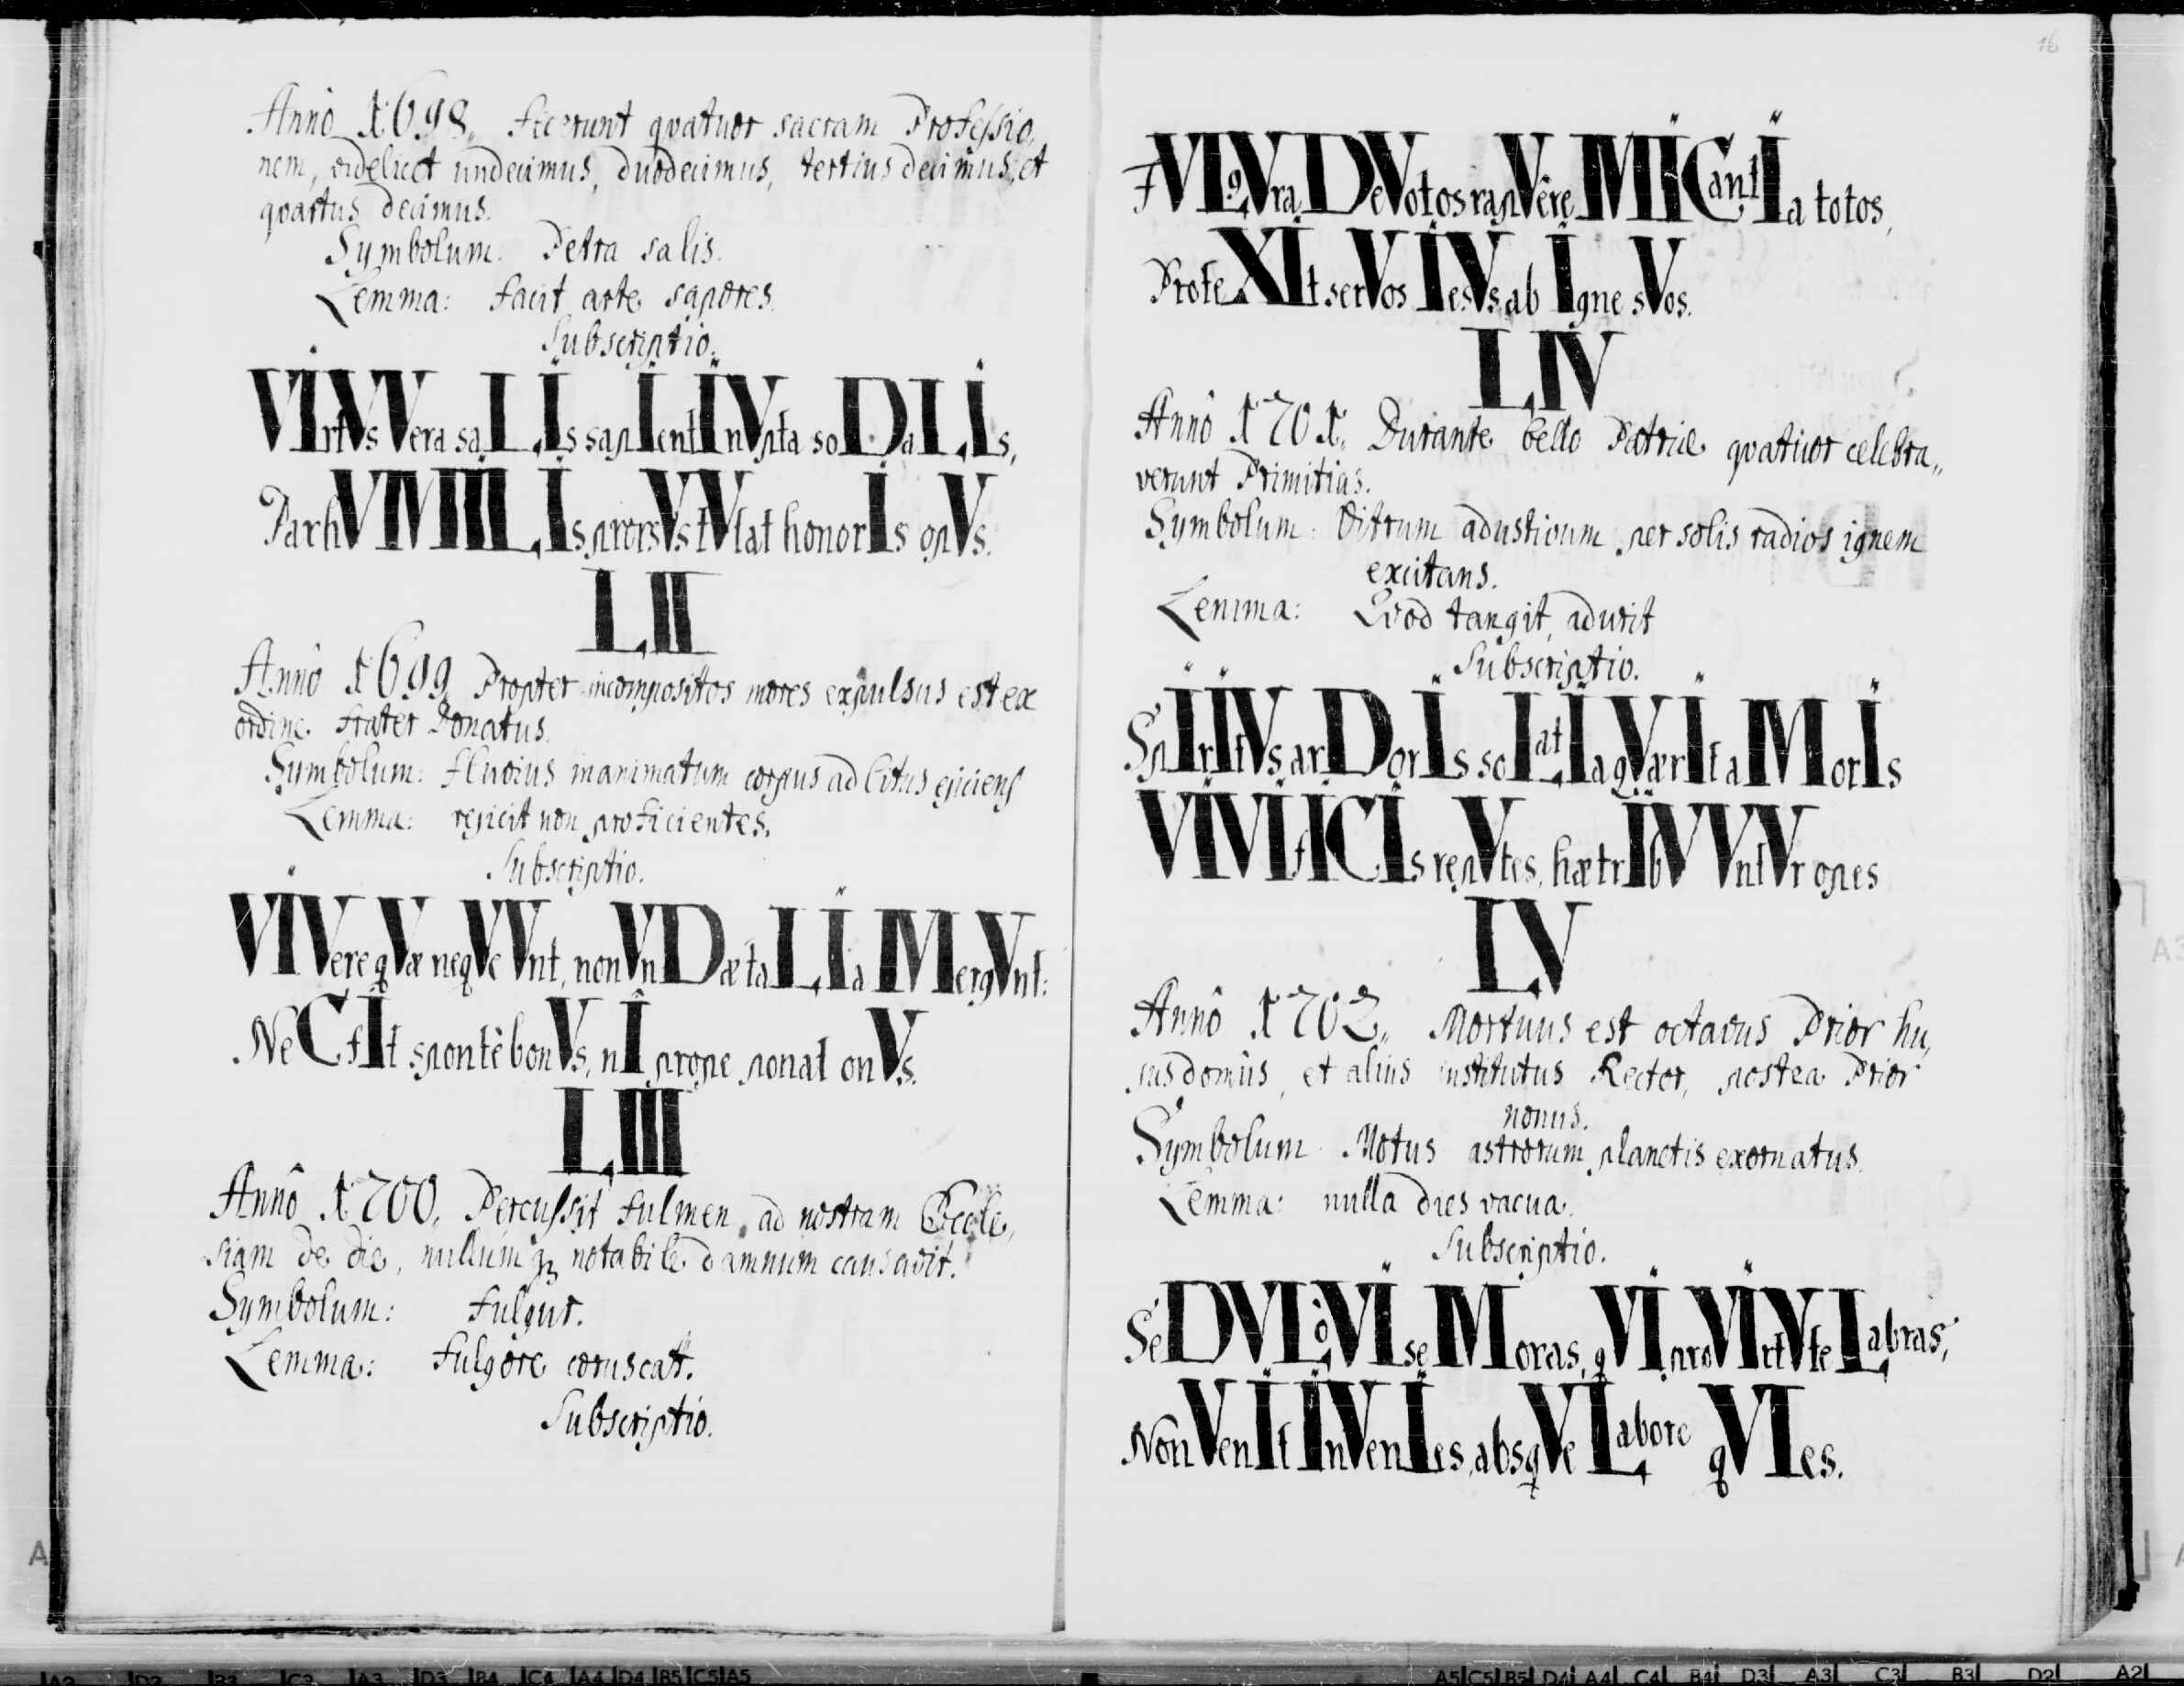 Annô 1698. fecerunt qvatuor sacram Professio,
nem, videlicet undecimus, duodecimus, tertius decimus, et
qvartus decimus.
Symbolum: Petra salis.
Lemma: facit arte sapores.
Subscriptio.
VIrtVs Vera saLIs sapIentIInVpta soDaLIs,
Pax hVMILIs prorsVs tVlat honorIs opVs.
LII
Annô 1699. Propter incompositos mores expulsus est ex
ordine frater Donatus.
Symbolum: fluvius inanimatum corpus ad litus ejiciens
Lemma: rejicit non proficientes.
Subscriptio.
VIVere qVæ neqVeVnt, non VnDæ taLIa MergVnt:
NeC fIt spontè bonVs, nI prope ponat onVs.
LIII
Annô 1700. Percussit fulmen ad nostram Eccle,
siam de die, nullumq3 notabile damnum causavit.
Symbolum: fulgur.
Lemma: fulgore coruscat.
Subscriptio.
16
fVLgVra DeVotos rapVêre MICantIa totos,
ProteXIt serVos IesVs ab Igne sVos.
LIV
Annô 1701. Durante bello Patriæ qvatuor celebra,,
verunt Primitias.
Symbolum: Vitrum adustivum per solis radios ignem
excitans.
Lemma: Qvod tangit, adurit
Subscriptio.
SpIrItVs arDorIs soLatIa qVærIt aMorIs
VIVIfICIs repVtes, hæ trIbVVntVr opes
LV
Annô 1702. Mortuus est octavus Prior hu,
jus domûs, et alius institutus Rector, postea Prior
nonus.
Symbolum: Motus astrorum planetis exornatus.
Lemma: nulla dies vacua.
Subscriptio.
SeDVLò VIse Moras, qVI pro VIrtVte Labras,
Non VenIt InVenIes, absqVe Labore qVIes.